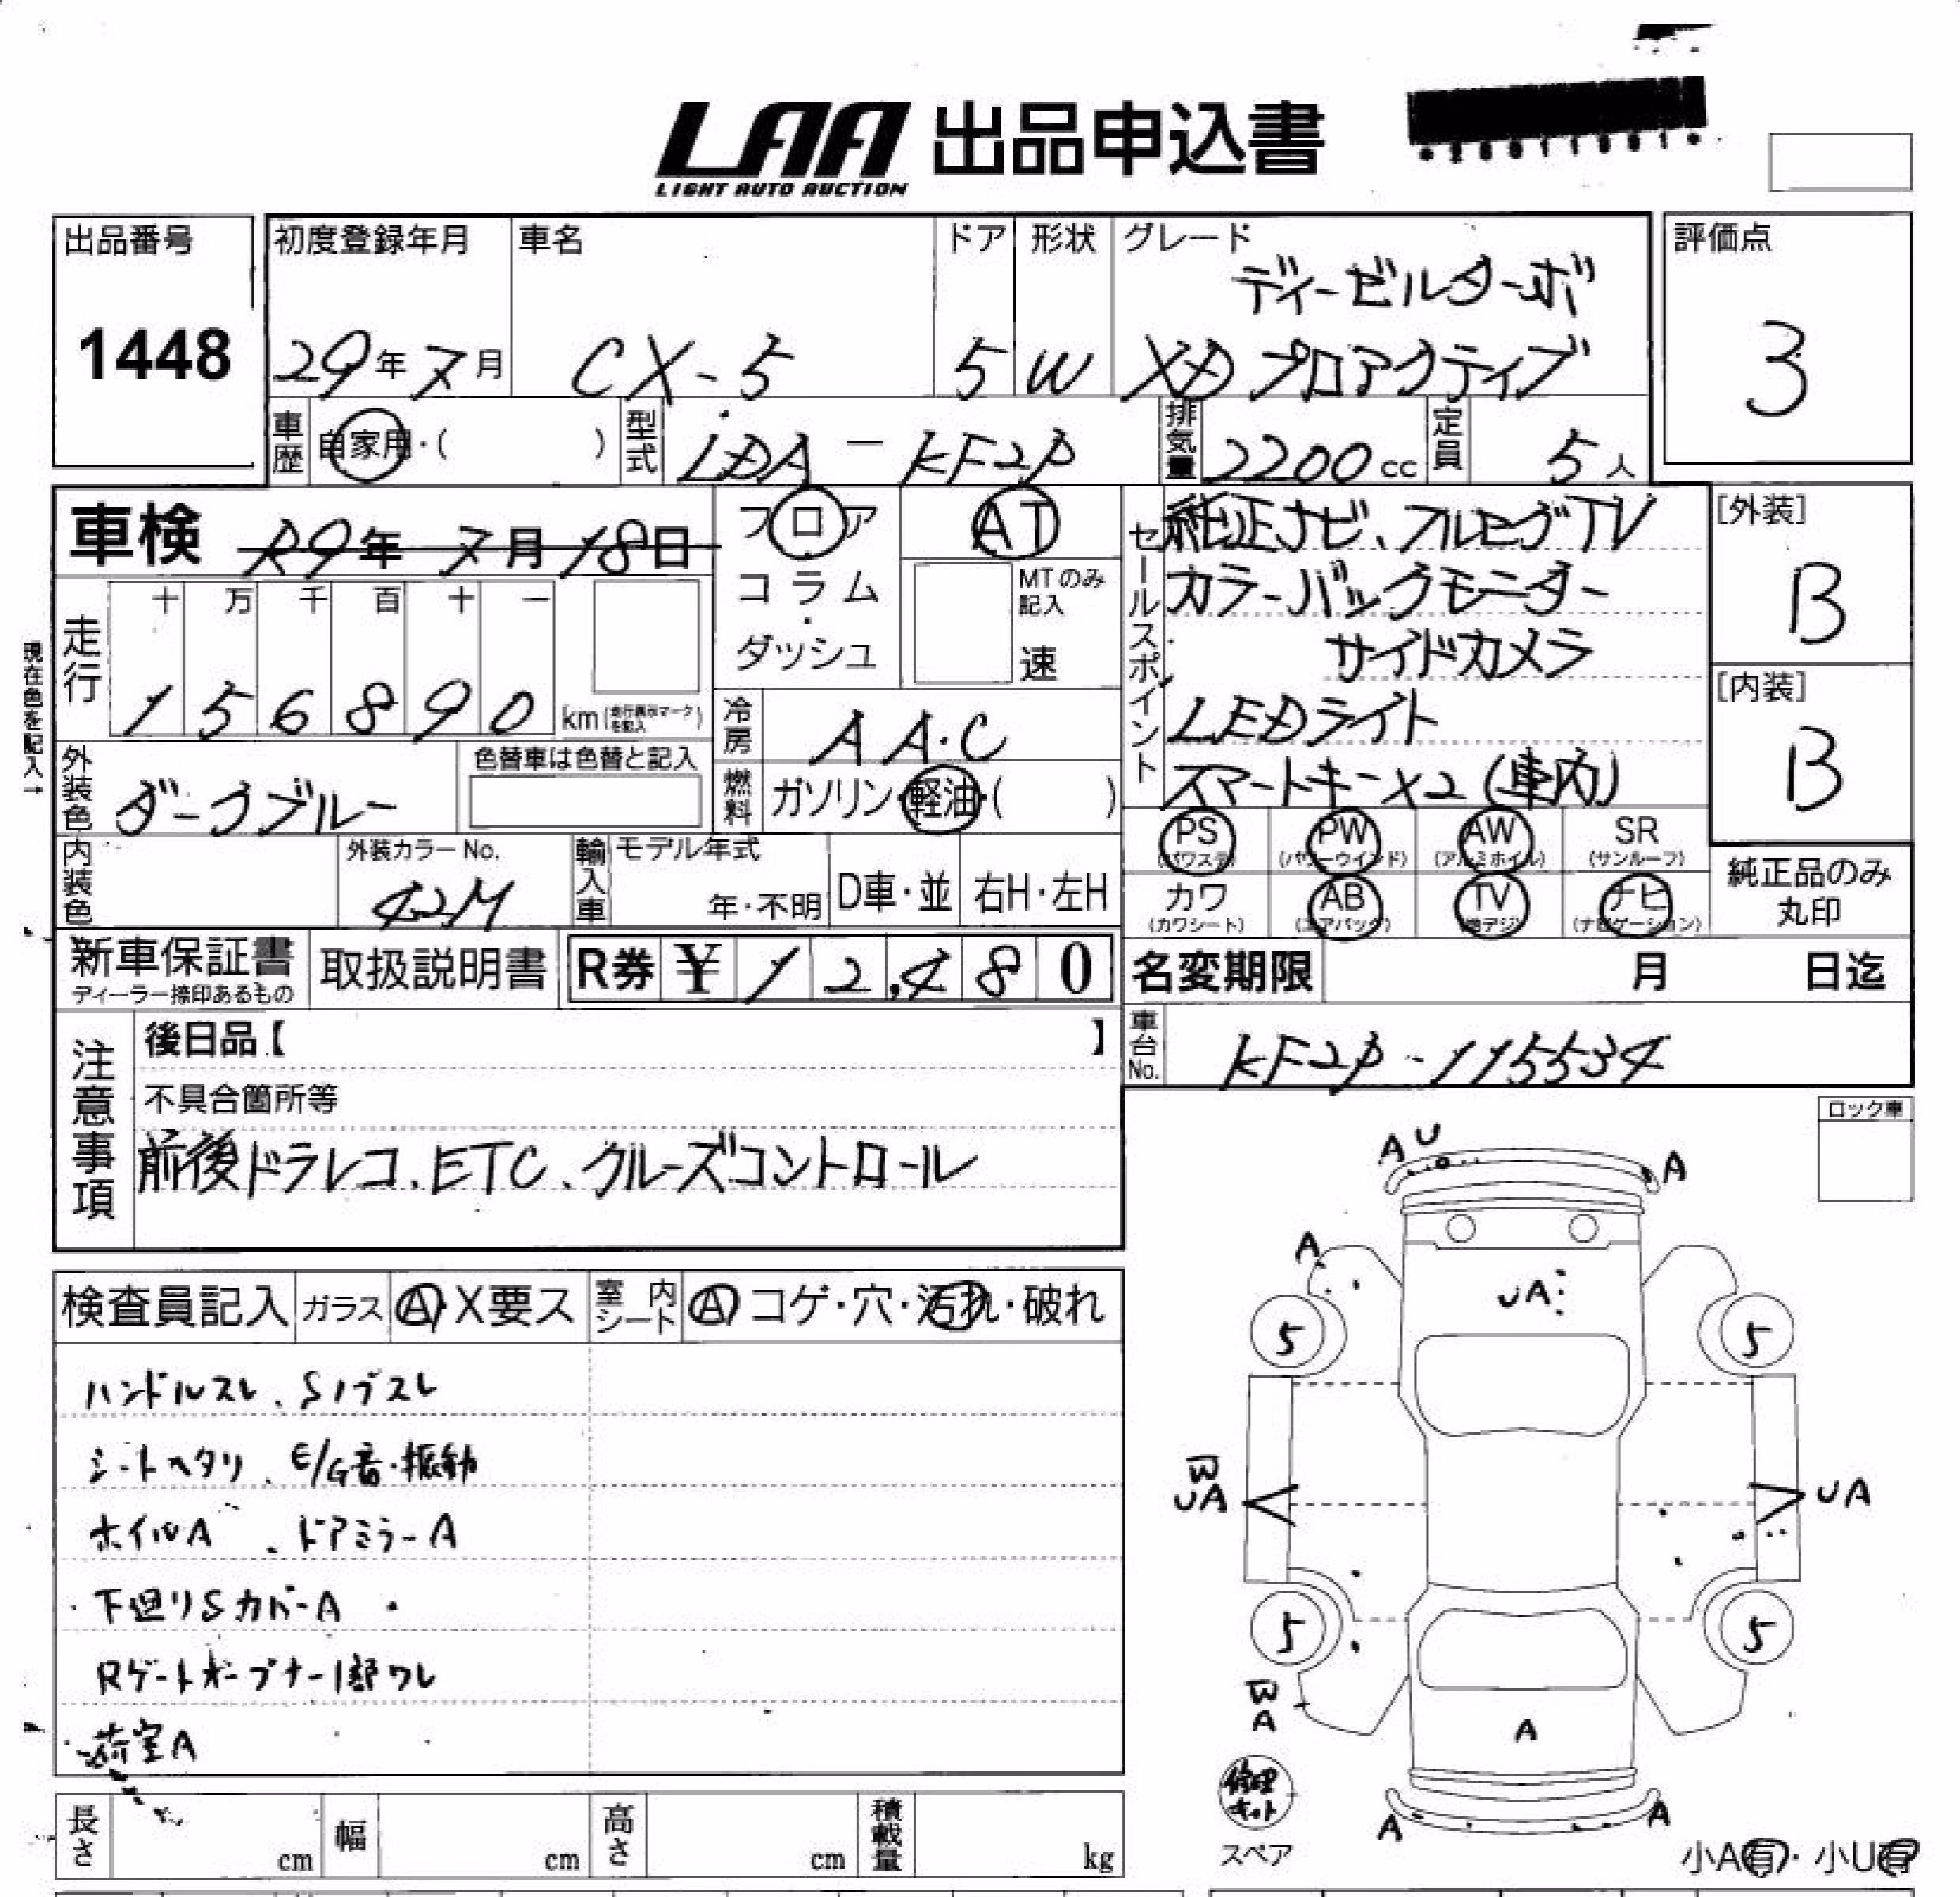 LAA 出品申込書
LIGHT AUTO AUCTION
出品番号
1448
初度登録年月
29年7月
車名
CX-5
ドア
5
形状
W
グレード
ディーゼルターボ
XD プロアクティブ
評価点
3
車歴
自家用・( )
型式
LDA-KF2P
排気量
2200cc
定員
5人
車検 R9年 7月18日
フロア
コラム
ダッシュ
AT
MTのみ記入
速
セールスポイント
純正ナビ、フルセグTV
カラーバックモニター
サイドカメラ
LEDライト
スマートキー×2 (車内)
[外装]
B
[内装]
B
現在色を記入→
走行
十 万 千 百 十 一
1 5 6 8 9 0 km (走行表示マークを記入)
冷房
AA.C
燃料
ガソリン・軽油・( )
外装色
ダークブルー
色替車は色替と記入
内装色
外装カラーNo.
42M
輸入車
モデル年式
年・不明
D車・並
右H・左H
PS (パワステ)
PW (パワーウインド)
AW (アルミホイル)
SR (サンルーフ)
カワ (カワシート)
AB (エアバック)
TV (地デジ)
ナビ (ナビゲーション)
純正品のみ
丸印
新車保証書
ディーラー捺印あるもの
取扱説明書
R券 ¥ 12,480
名変期限 月 日迄
車台No.
KF2P-115534
注意事項
後日品【 】
不具合箇所等
前後ドラレコ、ETC、クルーズコントロール
ロック車
検査員記入
ガラス
A・X要ス
室内シート
A コゲ・穴・汚れ・破れ
ハンドルスレ、Sノブスレ
シートヘタリ、E/G音・振動
ホイルA、ドアミラーA
下廻りSカバーA
Rゲートオープナー1部ワレ
荷室A
A U
A
A
UA
5
5
B
UA
UA
5
5
B
A
A
修理キット
スペア
A
A
小A有・小U有
長さ cm
幅 cm
高さ cm
積載量 kg